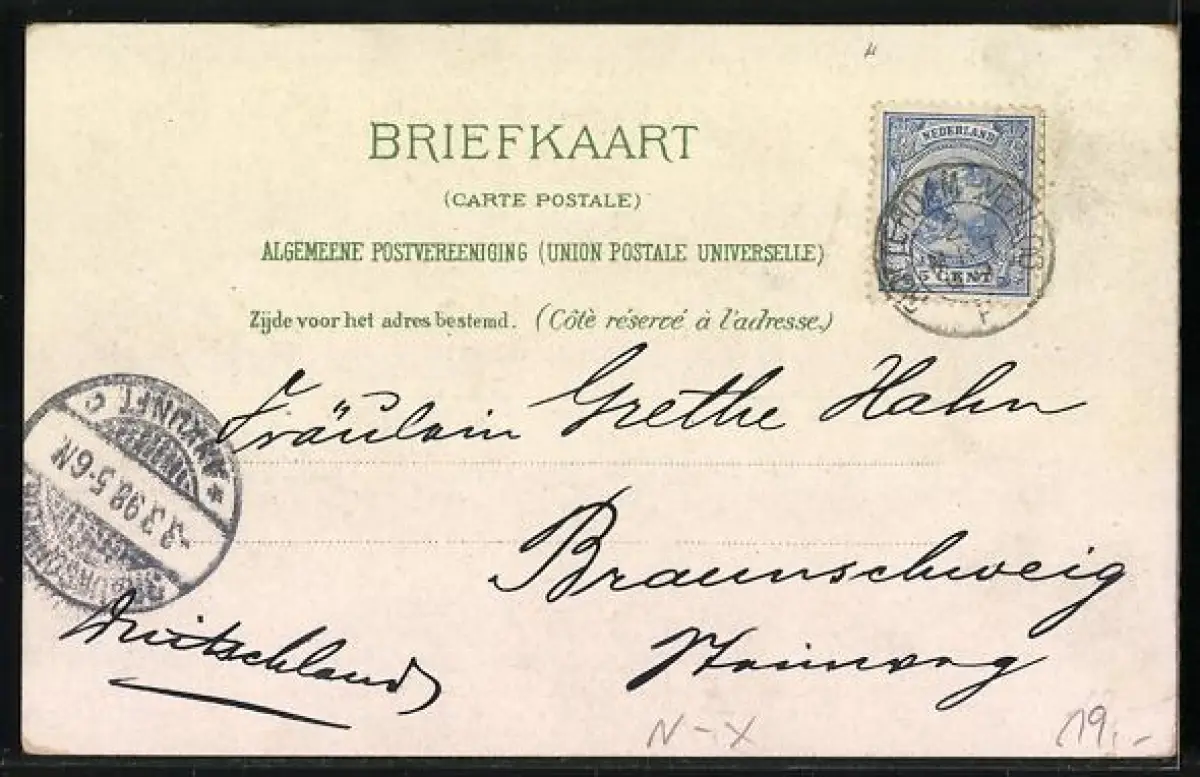 BRIEFKAART
(CARTE POSTALE)
ALGEMEENE POSTVEREENIGING (UNION POSTALE UNIVERSELLE)
Zijde voor het adres bestemd. (Côtè réservé à l'adresse.)
NEDERLAND
5 CENT
Fräulein Grethe Hahn
Braunschweig
Steinweg
Deutschland
ANKUNFT C
3.3.98 5-6N
N-X
19.-